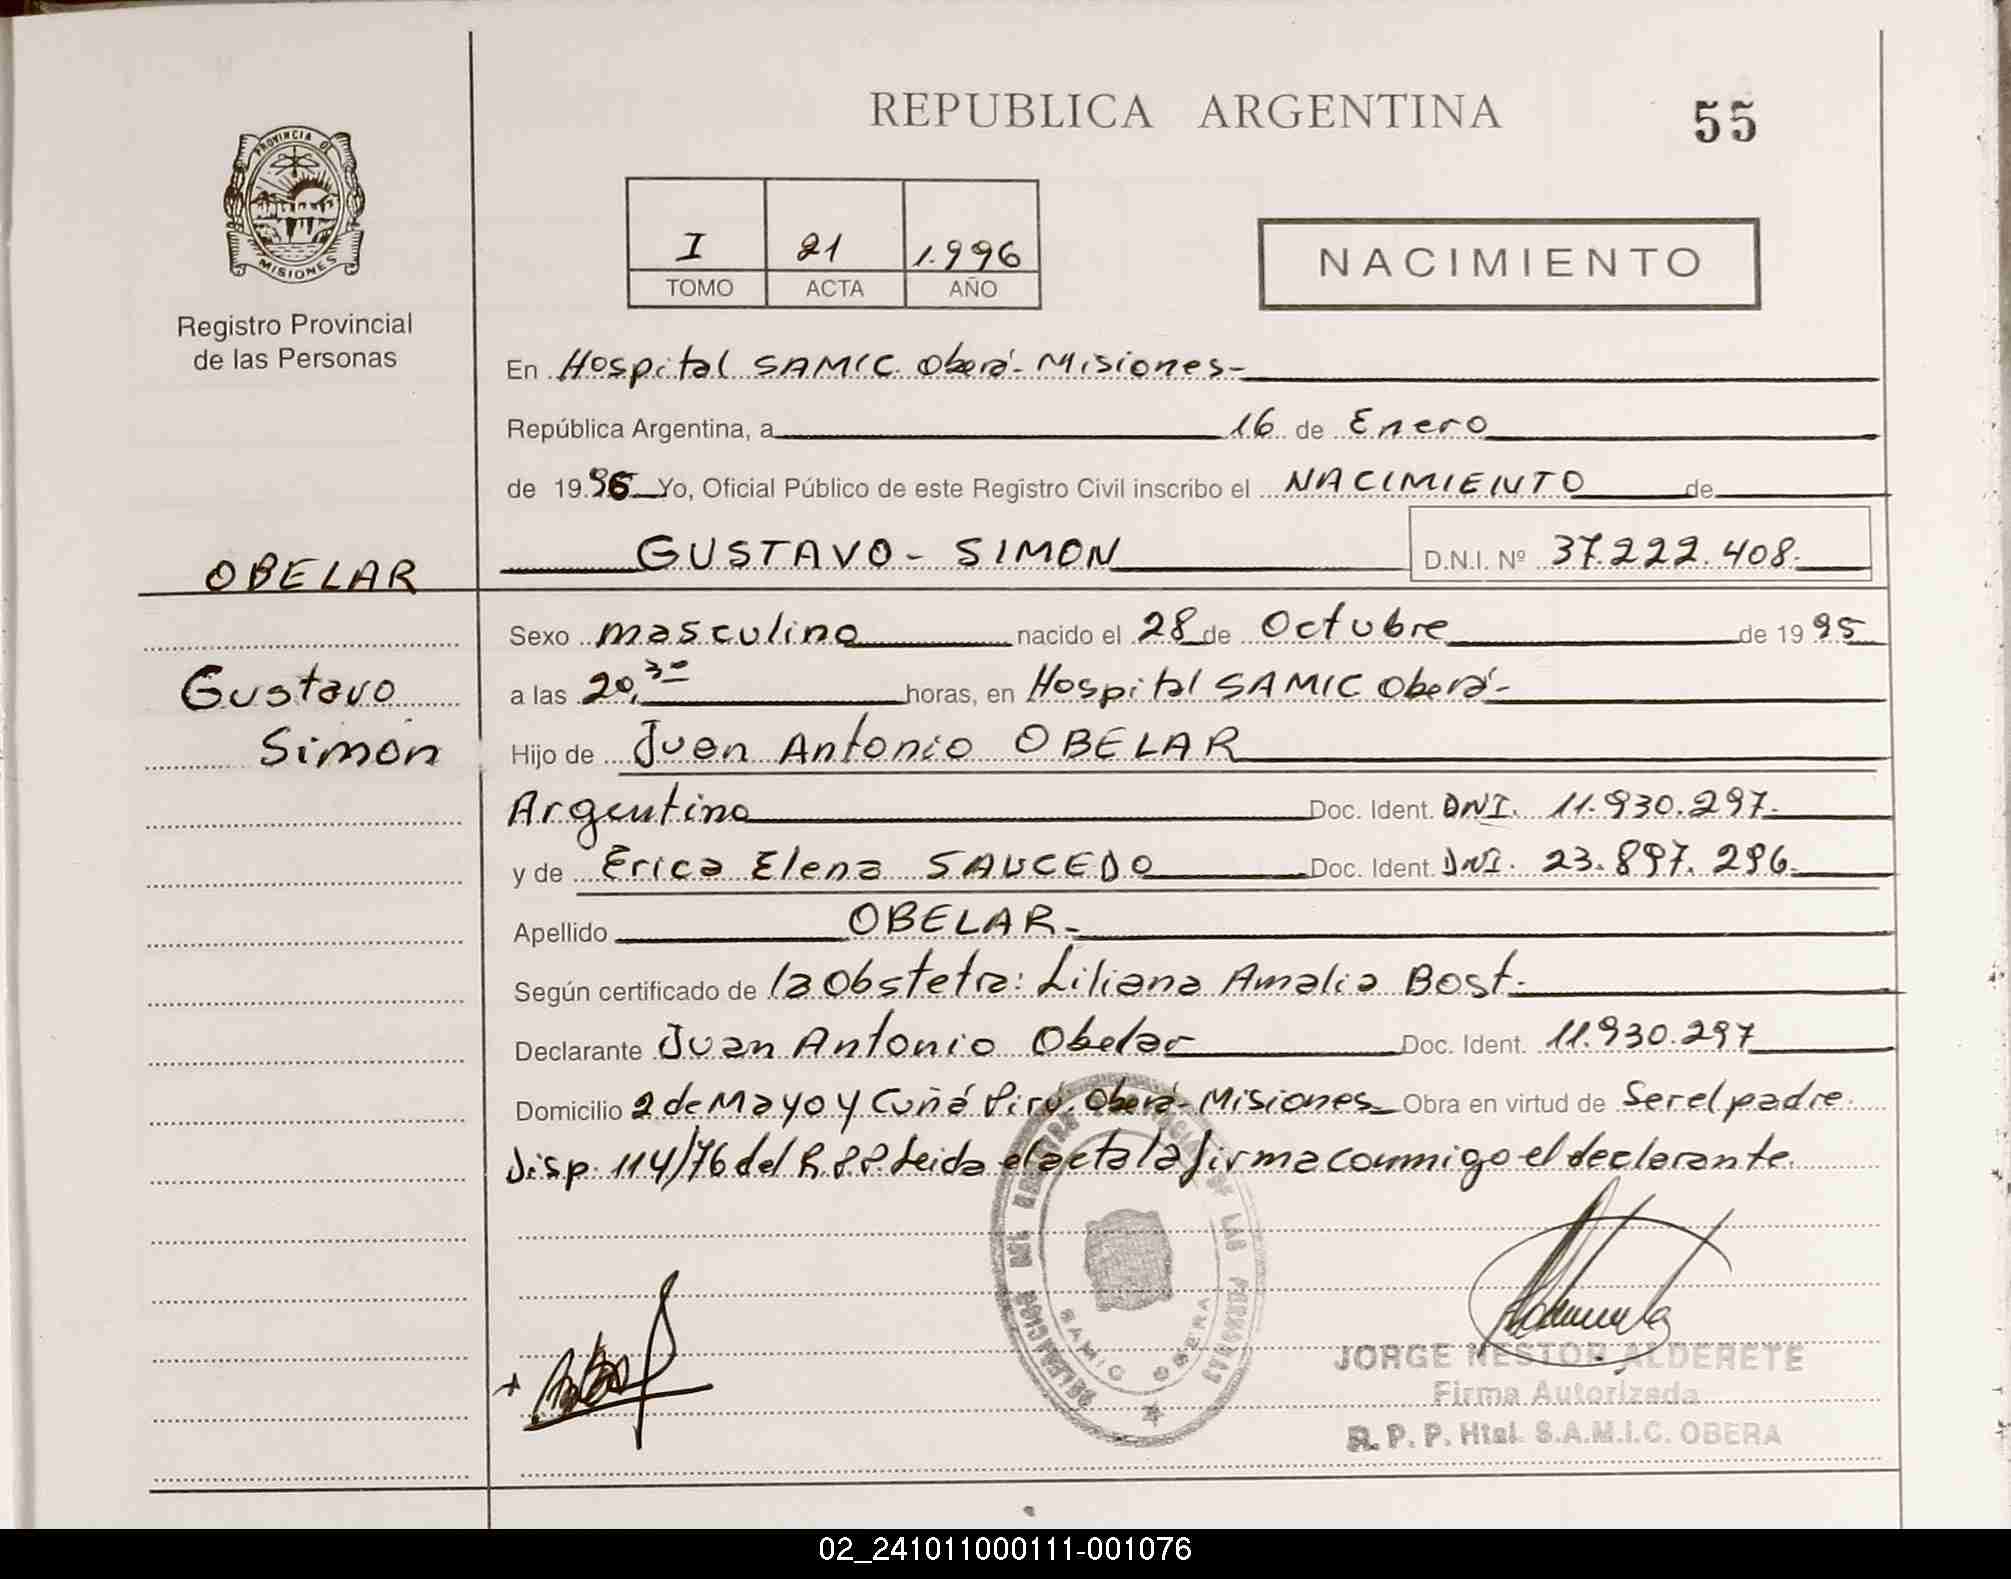 REPUBLICA ARGENTINA
55
PROVINCIA DE
MISIONES
Registro Provincial
de las Personas
I 21 1.996
TOMO ACTA AÑO
NACIMIENTO
En Hospital SAMIC Oberá - Misiones-
República Argentina, a 16 de Enero
de 1996 Yo, Oficial Público de este Registro Civil inscribo el NACIMIENTO de
OBELAR
GUSTAVO - SIMON D.N.I. Nº 37.222.408-
Sexo masculino nacido el 28 de Octubre de 1995
Gustavo
a las 20,30 horas, en Hospital SAMIC Oberá-
Simón
Hijo de Juan Antonio OBELAR
Argentino Doc. Ident. DNI. 11.930.297-
y de Erica Elena SAUCEDO Doc. Ident. DNI. 23.897.296-
Apellido OBELAR-
Según certificado de la Obstetra: Liliana Amalia Bost.
Declarante Juan Antonio Obelar Doc. Ident. 11.930.297
Domicilio 2 de Mayo y Cuñá Pirú. Oberá - Misiones Obra en virtud de Ser el padre
Disp. 114/76 del R.P.P. Leida el acta la firma conmigo el declarante.
SAMIC OBERA
JORGE NESTOR ALDERETE
Firma Autorizada
R. P. P. Htal. S.A.M.I.C. OBERA
02_241011000111-001076